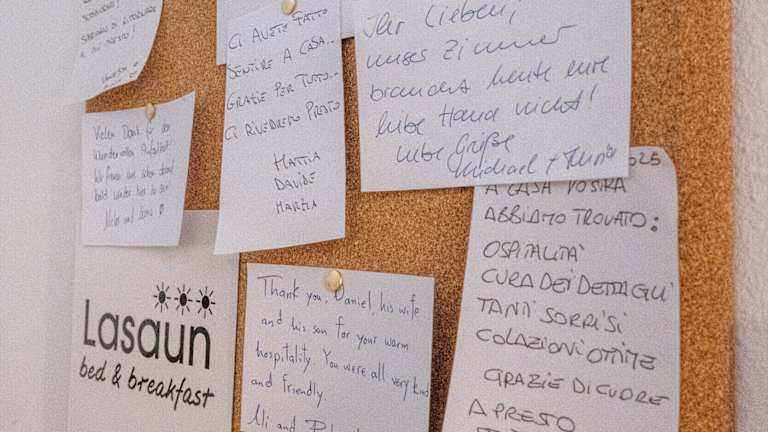 SPERIAMO DI RITORNARE
E A PRESTO!
CI AVETE FATTO
SENTIRE A CASA..
GRAZIE PER TUTTO..
CI RIVEDREMO PRESTO
MATTIA
DAVIDE
MARTA
Ihr Lieben,
unser Zimmer
braucht heute eure
liebe Hand nicht!
Liebe Grüße
Michael +
Vielen Dank für den
wundervollen Aufenthalt!
Wir freuen uns schon darauf
bald wieder hier zu sein!
und
Lasaun
bed & breakfast
Thank you, Daniel, his wife
and his son for your warm
hospitality. You were all very kind
and friendly.
and
2025
A CASA VOSTRA
ABBIAMO TROVATO:
OSPITALITÀ
CURA DEI DETTAGLI
TANTI SORRISI
COLAZIONI OTTIME
GRAZIE DI CUORE
A PRESTO